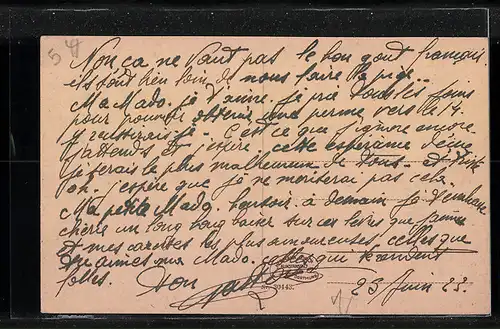 54
Non ça ne vaut pas le bon gout français
ils sont bien loin de nous faire la pige..
Ma Mado. je t'aime. je prie tous les jours
pour pouvoir obtenir une perme vers le 14.
y réussirais-je. C'est ce que j'ignore encore
j'attends et j'espère, cette espérance déçue
je serais le plus malheureux de tous. et
oh. j'espère que je ne mériterai pas cela.
Ma petite Mado. bonsoir. à demain je t'embrasse
chérie un long long baiser sur ces lèvres que j'aime
et mes caresses les plus amoureuses, celles que
tu aimes ma Mado. celles qui rendent
folles. Ton
23 Juin 23.